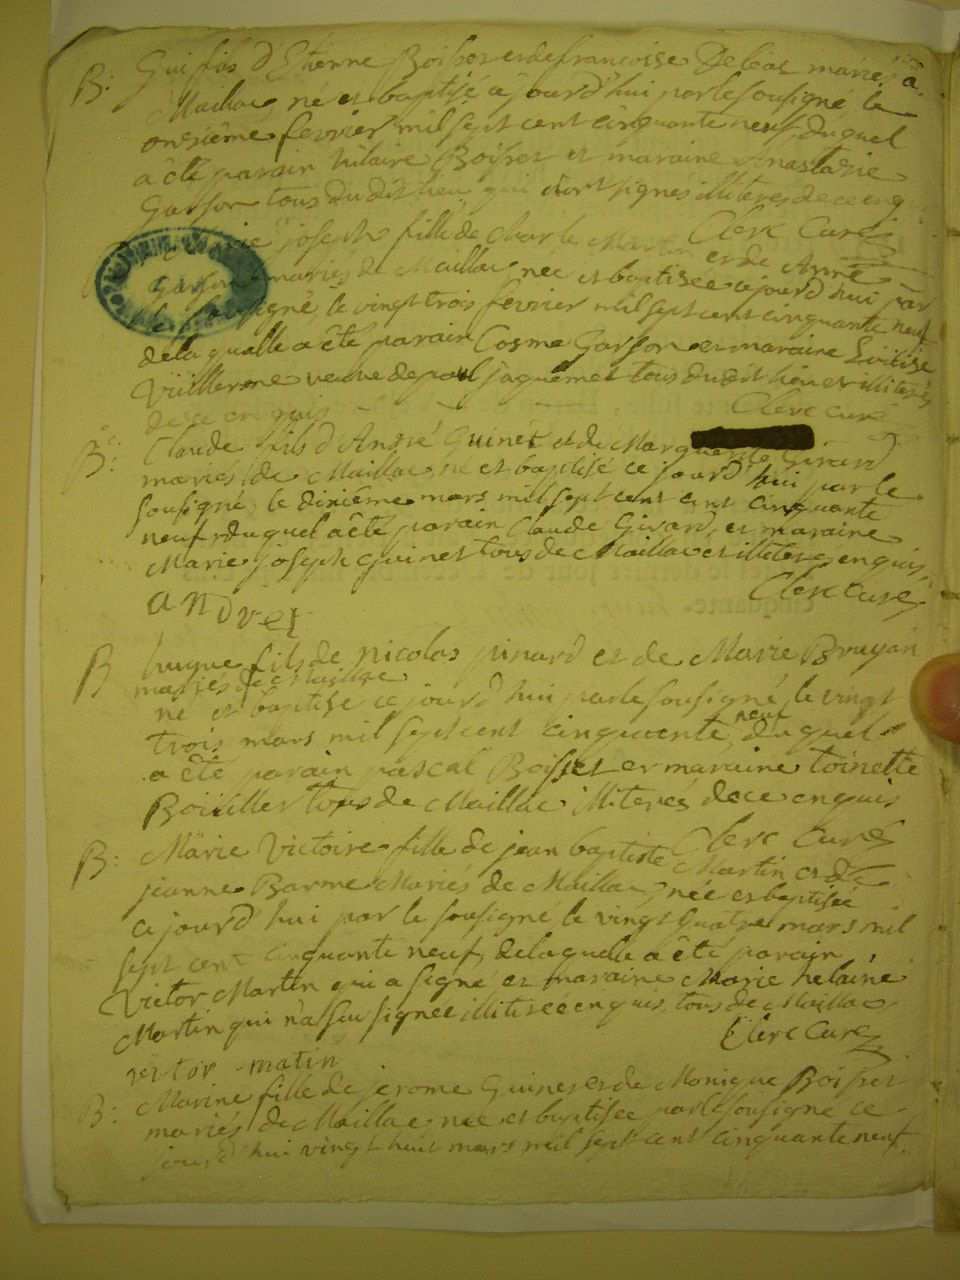 B: Gui fils d'Etienne Boisser et de francoise Deleas mariés à
Maillac né et baptisé à jourd'hui par le sousigné le
onzième fevrier mil sept cent cinquante neuf, duquel
a été parain hilaire Boisset et maraine Anastasie
Gasson tous du dit lieu qui n'ont signés illiteres de ce enq
Clerc Curé
joseph fille de Charle et de Anne
mariés de Maillac, née et baptisée cejourd'hui par
le sousigné, le vingt trois fevrier mil sept cent cinquante neuf
de la quelle a été parain Cosme Gasson et maraine
Vüillerme veuve de paul jaquemet tous du dit lieu et illiterés
de ce enquis
Clerc Curé
B: Claude fils d'André Guinet et de Marguerite Girard
mariés de Maillac né et baptisé ce jourd'hui par le
sousigné, le dixième mars mil sept cent cent cinquante
neuf, duquel a été parain Claude Girard, et maraine
Marie joseph Guinet tous de Maillac et illiteres enquis,
Clerc Curé
B hugue fils de nicolas pinard et de Marie Bruyan
mariés de Maillac
né et baptisé ce jourd'hui par le sousigné, le vingt
trois mars mil sept cent cinquante neuf duquel
a été parain pascal Boisset et maraine toinette
Boüillet tous de Maillac illiterés de ce enquis
Clerc Curé
B: Marie Victoire fille de jean baptiste Martin et de
jeanne Barme Mariés de Maillac, née et baptisée
ce jourd'hui par le sousigné le vingt quatre mars mil
sept cent cinquante neuf, de laquelle a été parain
Victor Martin qui a signé et maraine Marie helaine
Martin qui n'a sçu signée illiterée enquis, tous de Maillac
Clerc Curé
victor matin
B: Marine fille de jerome Guinet et de Monique Boisset
mariés de Maillac née et baptisée par le sousigné ce
jourd'hui vingt huit mars mil sept cent cinquante neuf.